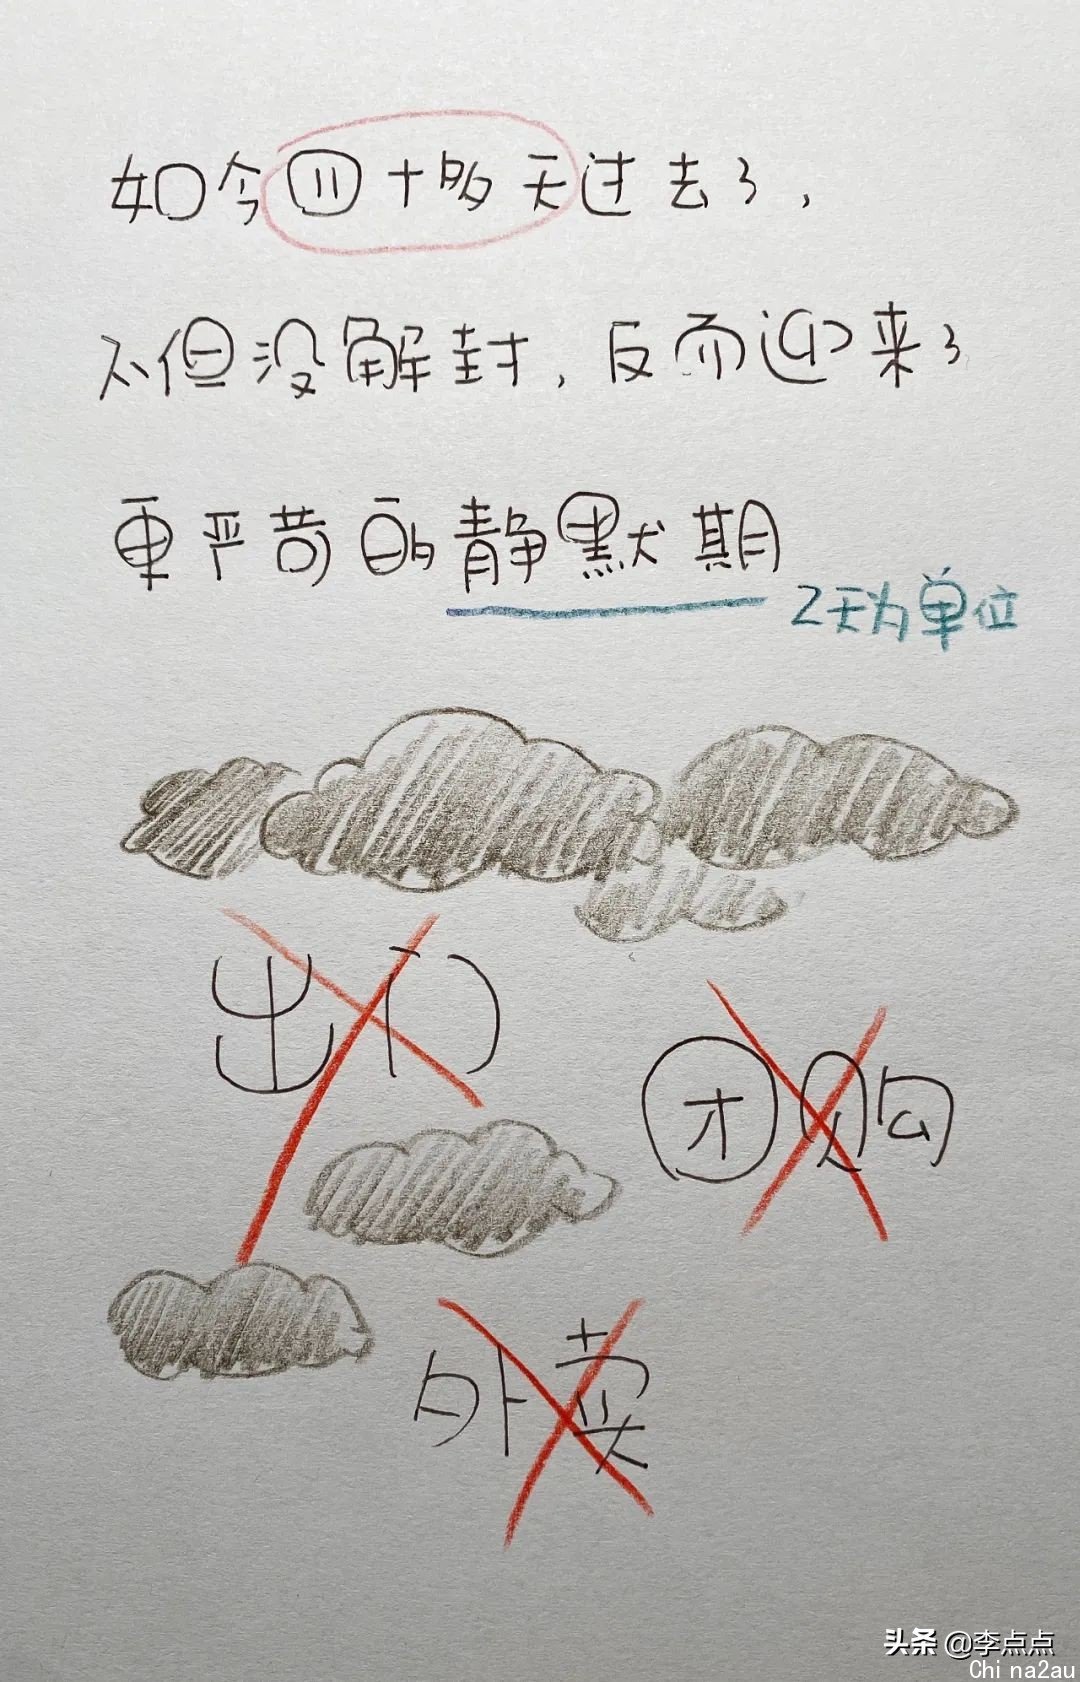 如今四十多天过去了，
不但没解封，反而迎来了
更严苛的静默期
2天为单位
出门
团购
外卖
头条 @李点点
Chi na2au